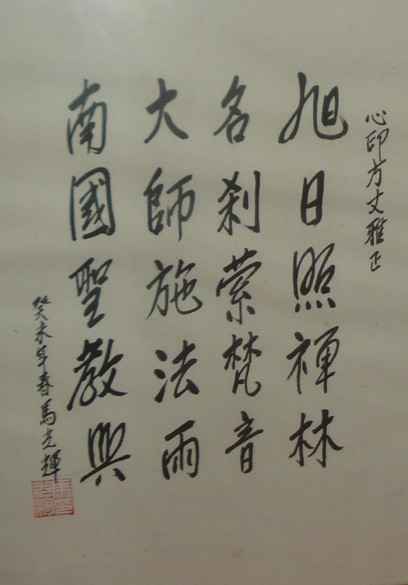 心印方丈雅正
旭日照禅林
名刹萦梵音
大師施法雨
南國聖教興
癸未年春馬光輝